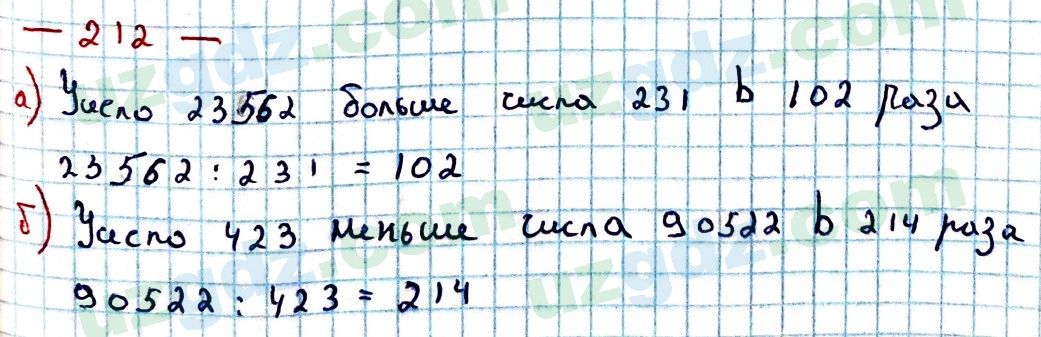 — 212 —
а) Число 23562 больше числа 231 в 102 раза
23562 : 231 = 102
б) Число 423 меньше числа 90522 в 214 раза
90522 : 423 = 214
uzgdz.com
uzgdz.com
uzgdz.com
uzgdz.com